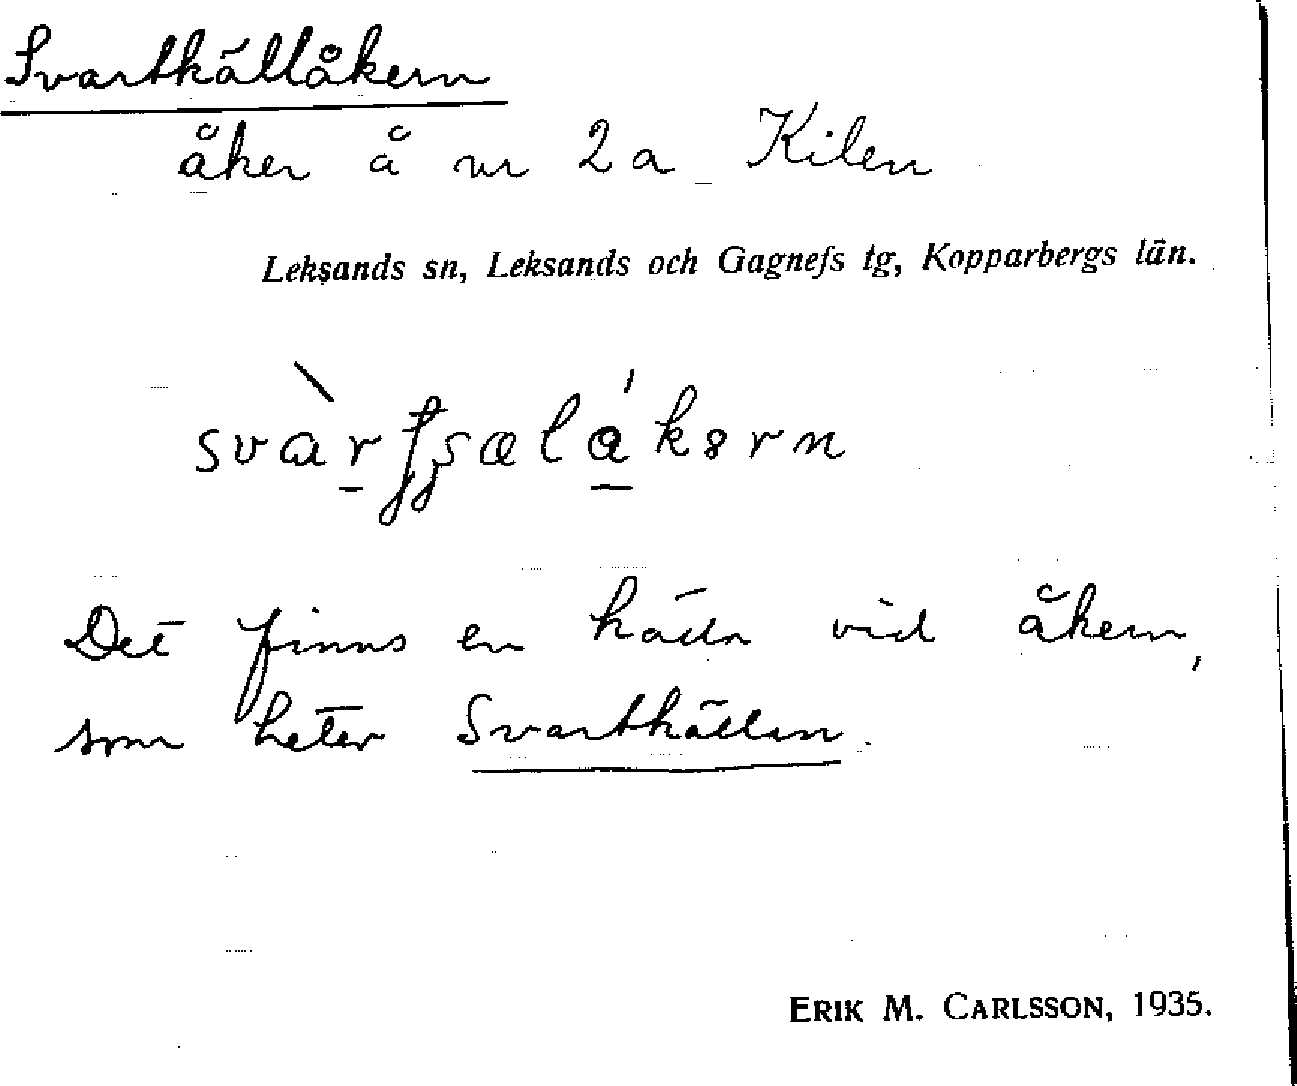 Svartkällåkern
åker å nr 2a Kilen
Leksands sn, Leksands och Gagnefs tg, Kopparbergs län.
Det finns en källa vid åkern,
som heter Svartkällan.
ERIK M. CARLSSON, 1935.